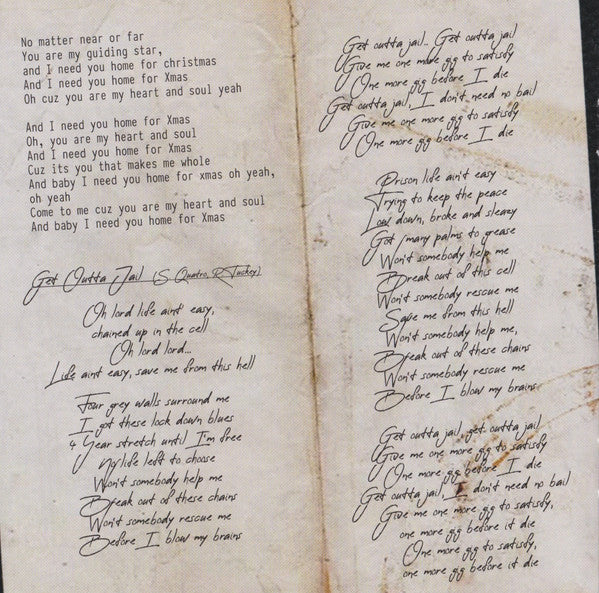 No matter near or far
You are my guiding star,
and I need you home for christmas
And I need you home for Xmas
Oh cuz you are my heart and soul yeah
And I need you home for Xmas
Oh, you are my heart and soul
And I need you home for Xmas
Cuz its you that makes me whole
And baby I need you home for xmas oh yeah,
oh yeah
Come to me cuz you are my heart and soul
And baby I need you home for Xmas
Get Outta Jail (S Quatro, R Tuckey)
Oh lord life aint' easy,
chained up in the cell
Oh lord lord...
Life aint easy, save me from this hell
Four grey walls surround me
I got these lock down blues
4 Year stretch until I'm free
My life left to choose
Won't somebody help me
Break out of these chains
Won't somebody rescue me
Before I blow my brains
Get outta jail.. Get outta jail
Give me one more gg to satisfy
One more gg before I die
Get outta jail, I don't need no bail
Give me one more gg to satisfy
One more gg before I die
Prison life ain't easy
Trying to keep the peace
Low down, broke and sleazy
Got many palms to grease
Won't somebody help me
Break out of this cell
Won't somebody rescue me
Save me from this hell
Won't somebody help me,
Break out of these chains
Won't somebody rescue me
Before I blow my brains
Get outta jail, get outta jail
Give me one more gg to satisfy
One more gg before I die
Get outta jail, I don't need no bail
Give me one more gg to satisfy,
one more gg before it die
One more gg to satisfy,
one more gg before it die